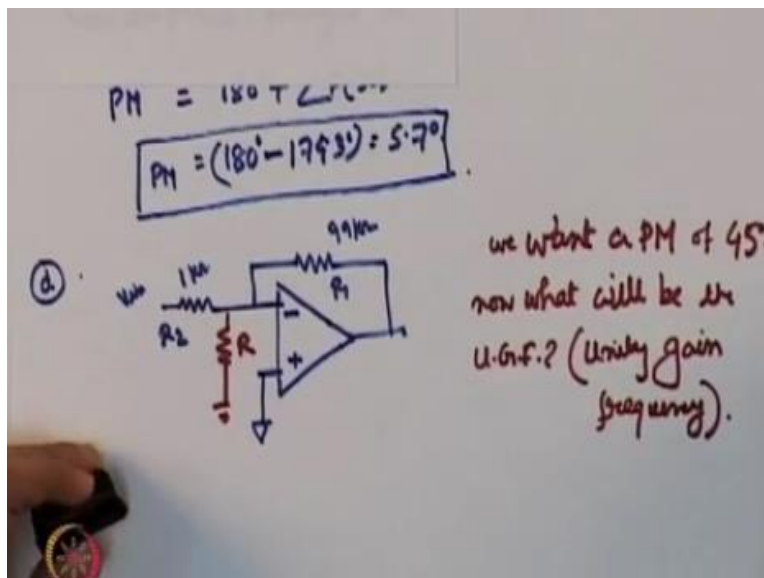 PM = 180 +
PM = (180° - 179.3°) = 5.7°
d
99kΩ
1kΩ
R1
R2
R
-
+
we want a PM of 45°
now what will be the
U.G.F.? (Unity gain
frequency).